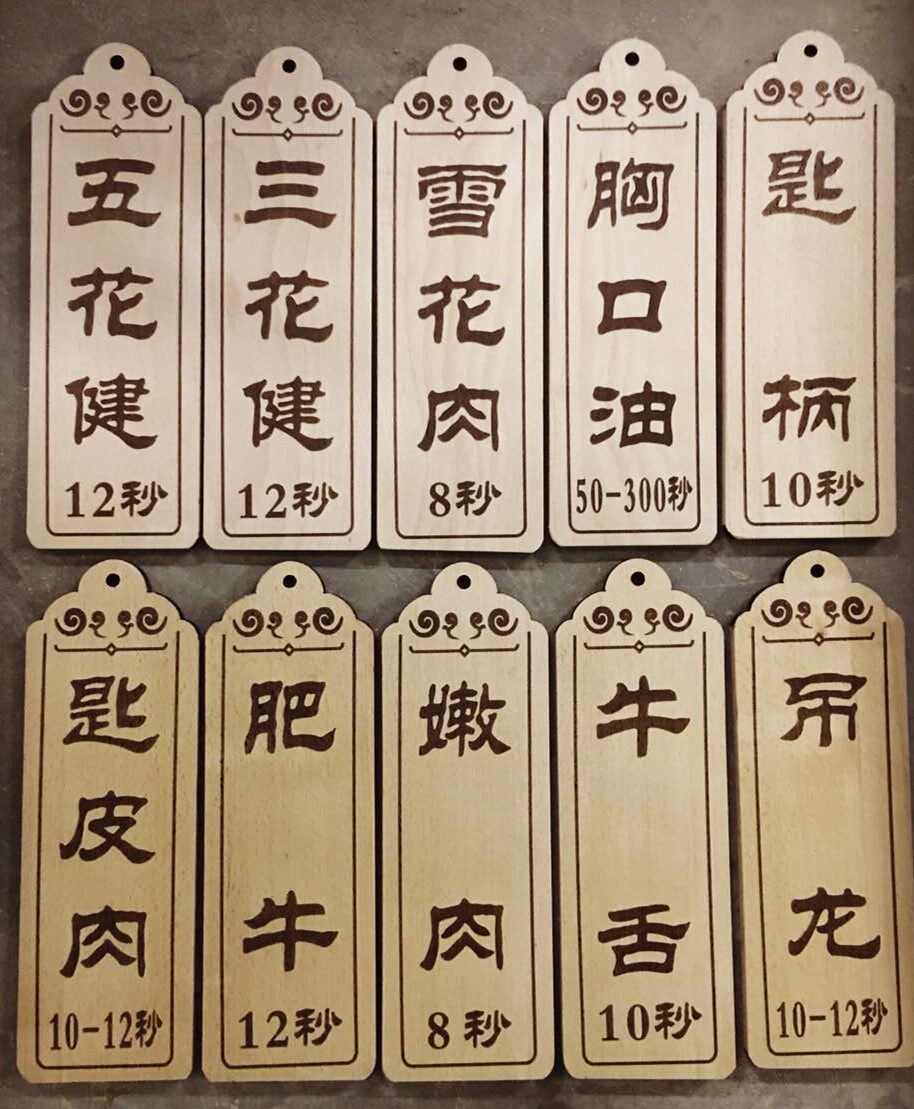 五花健
12秒
三花健
12秒
雪花肉
8秒
胸口油
50-300秒
匙柄
10秒
匙皮肉
10-12秒
肥牛
12秒
嫩肉
8秒
牛舌
10秒
吊龙
10-12秒